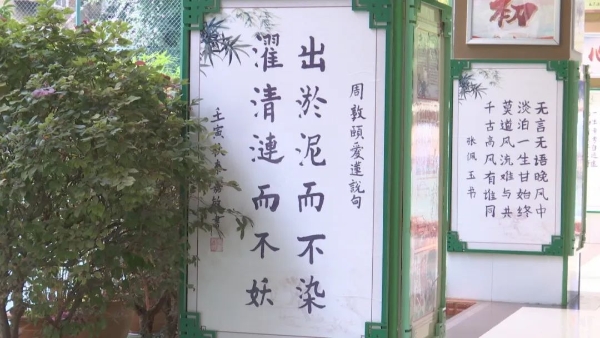 周敦頤愛蓮說句
出淤泥而不染
濯清漣而不妖
壬寅
初
无言无语晚风中
淡泊一生甘始终
莫道风流难与共
千古高风有谁同
张佩玉书